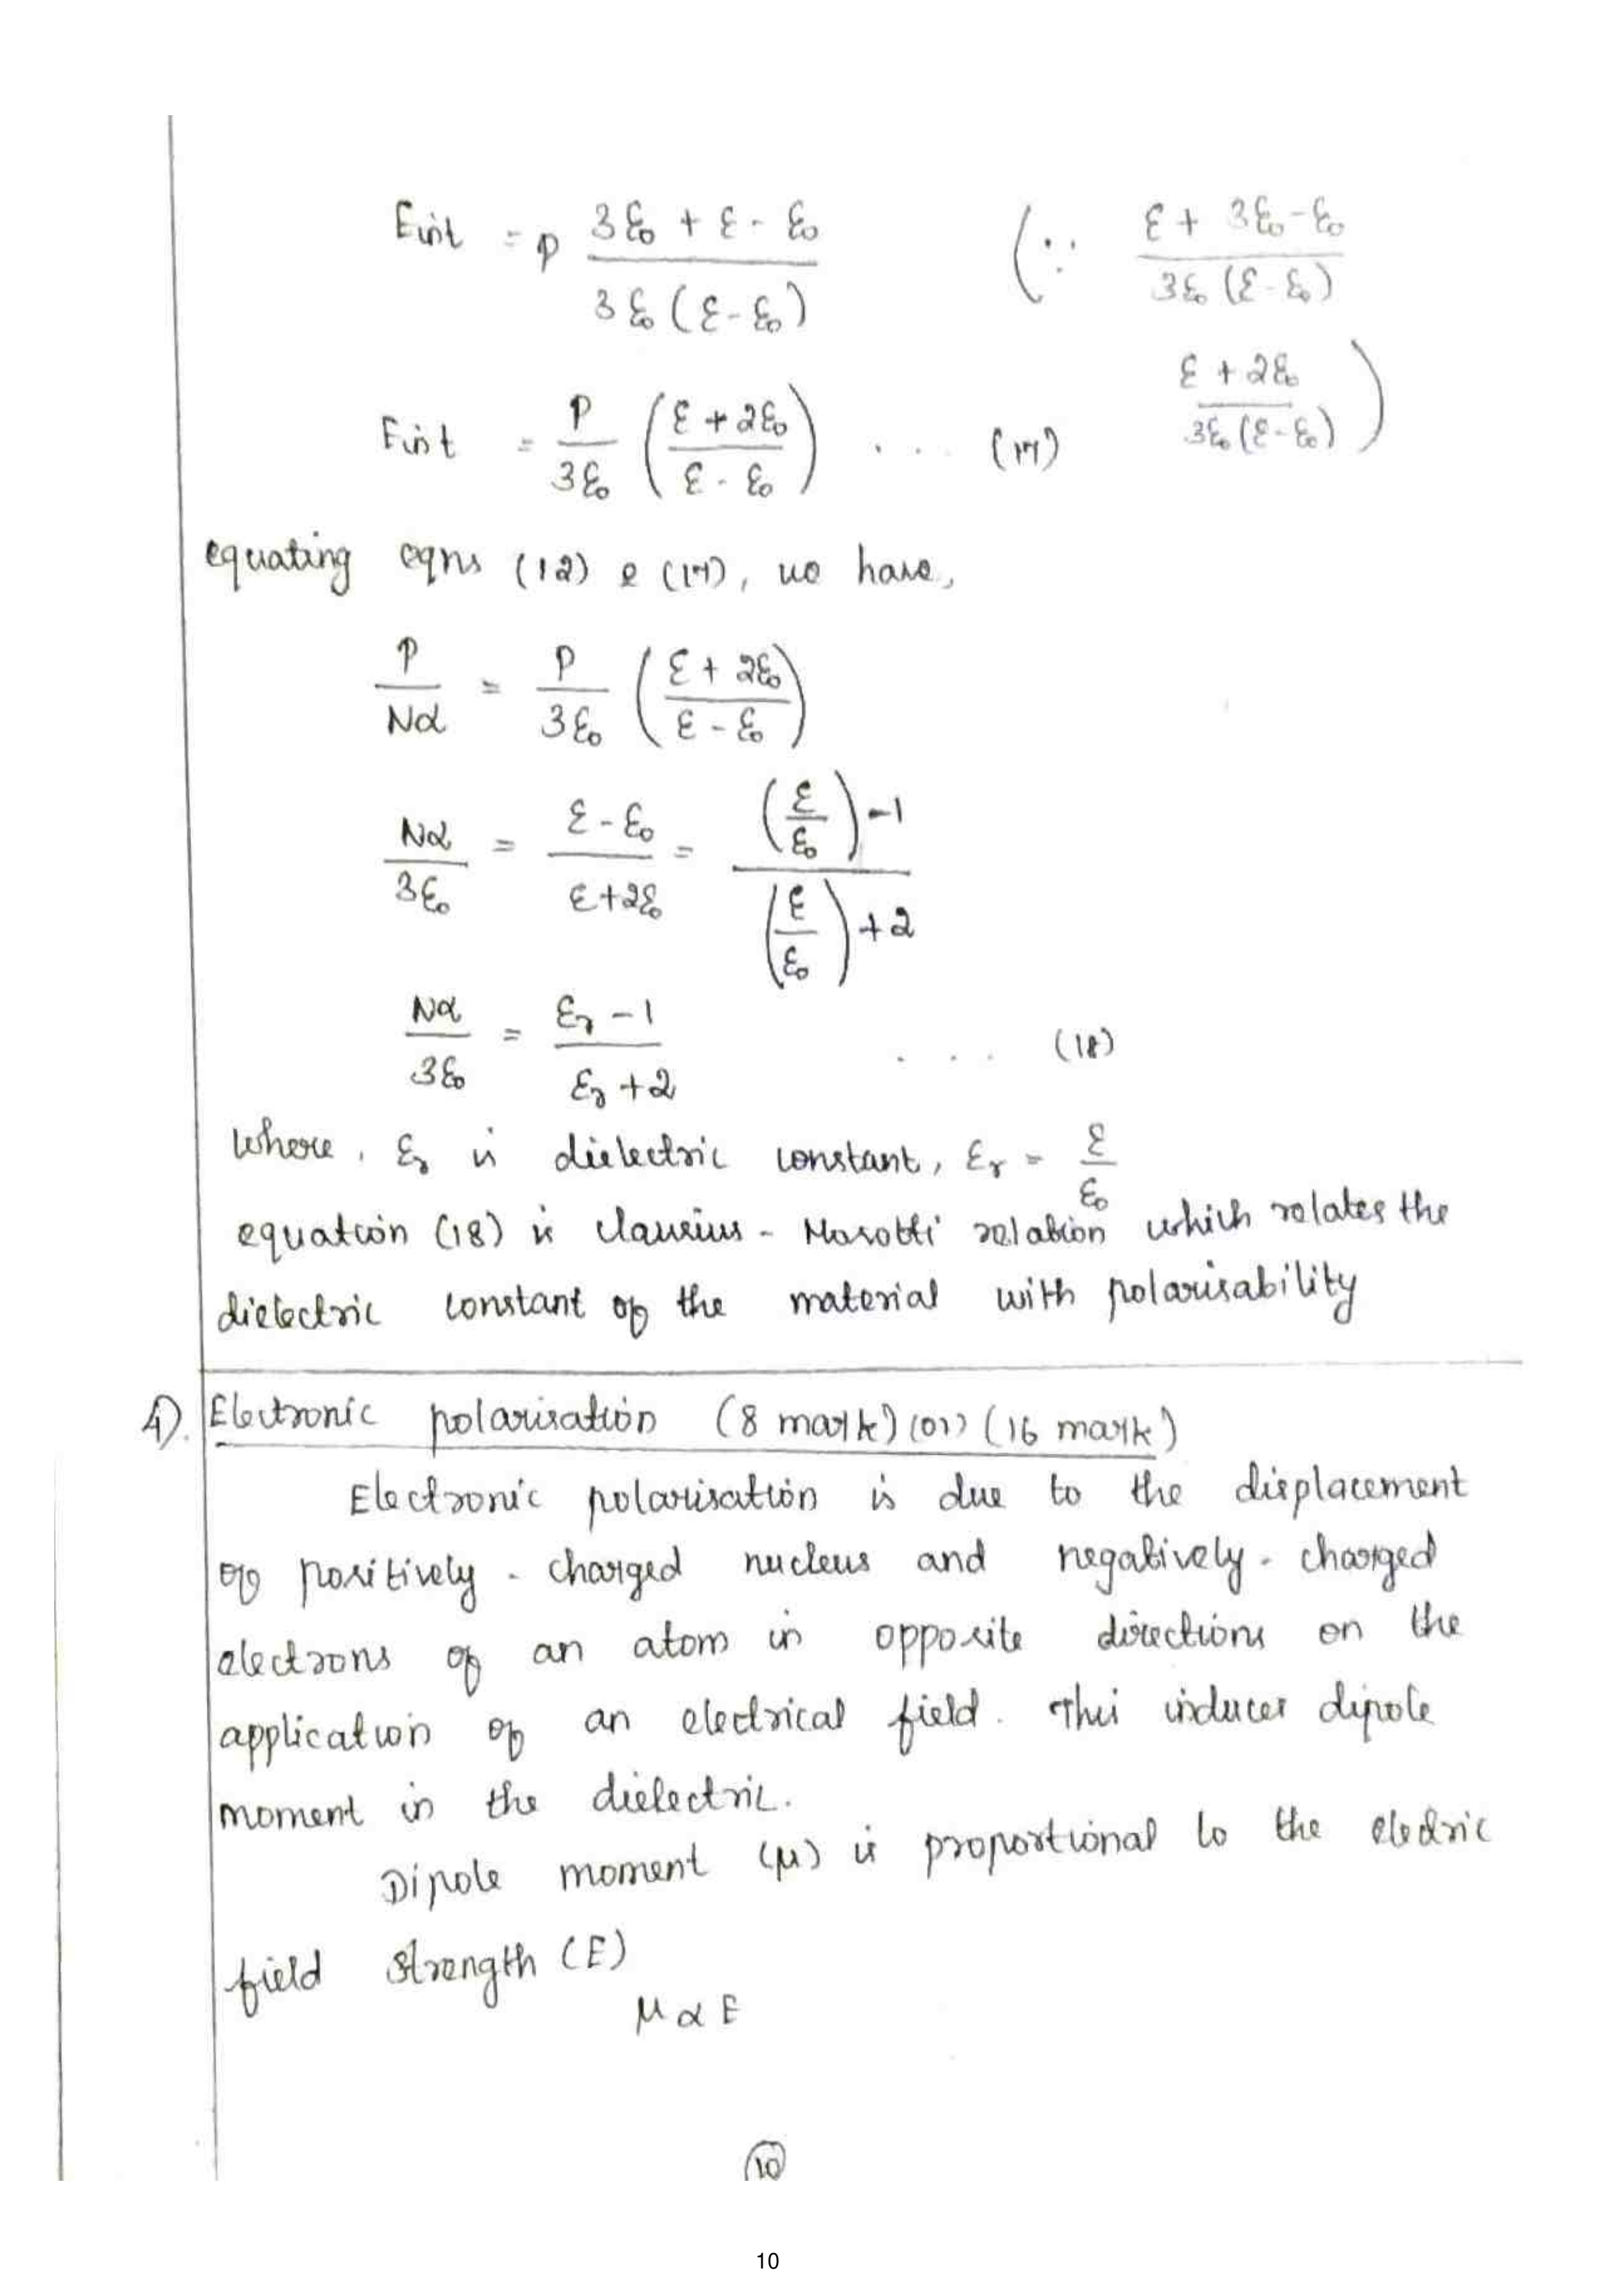 Eint = P (3ε₀ + ε - ε₀) / (3ε₀(ε-ε₀)) (∵ (ε + 3ε₀-ε₀) / (3ε₀(ε-ε₀))
(ε + 2ε₀) / (3ε₀(ε-ε₀)))
Eint = P/3ε₀ ((ε + 2ε₀)/(ε - ε₀)) .... (17)
equating eqns (12) & (17), we have,
P/Nα = P/3ε₀ ((ε + 2ε₀)/(ε - ε₀))
Nα/3ε₀ = (ε-ε₀)/(ε+2ε₀) = ((ε/ε₀)-1)/((ε/ε₀)+2)
Nα/3ε₀ = (εr - 1)/(εr + 2) . . . (18)
Where, εr is dielectric constant, εr = ε/ε₀
equation (18) is Clausius - Mosotti relation which relates the
dielectric constant of the material with polarisability
4). Electronic polarisation (8 mark) (or) (16 mark)
Electronic polarisation is due to the displacement
of positively - charged nucleus and negatively - charged
electrons of an atom in opposite directions on the
application of an electrical field. This induces dipole
moment in the dielectric.
Dipole moment (μ) is proportional to the electric
field strength (E)
μ α E
10
10